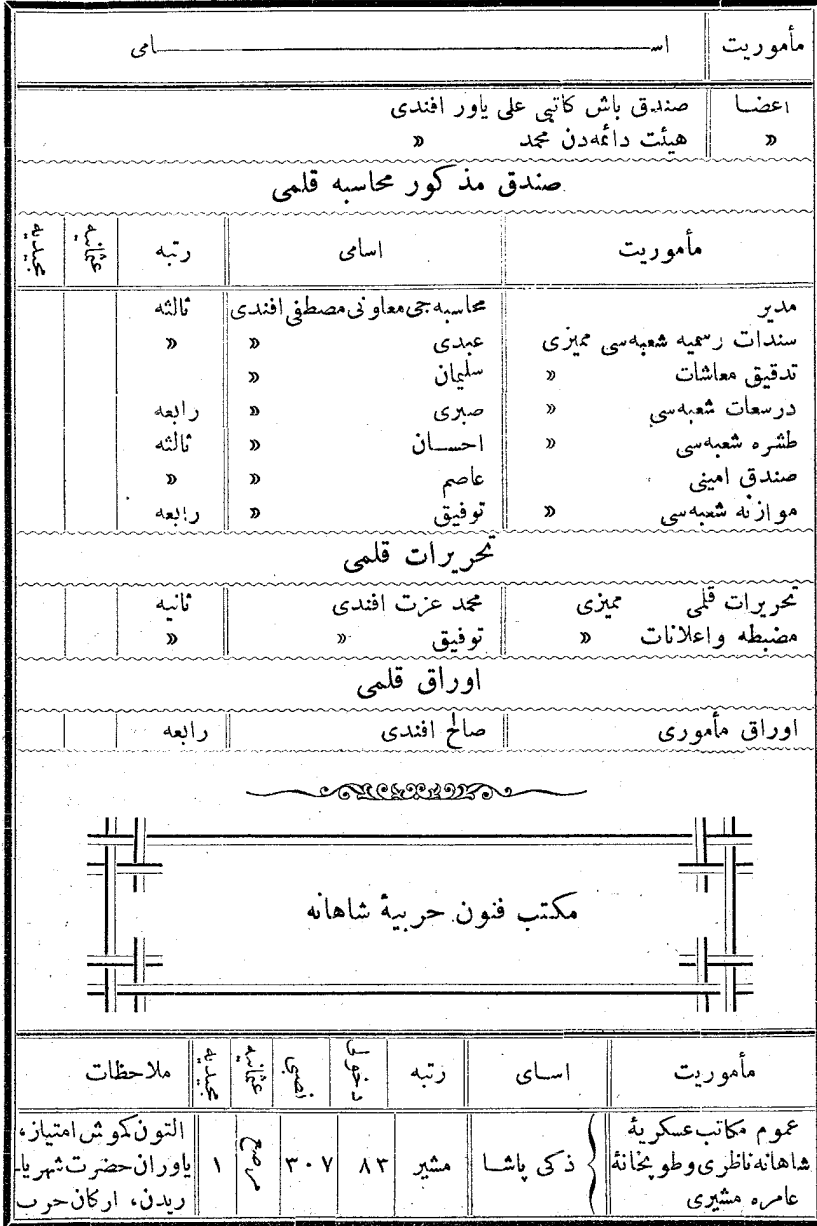 مأموریت اســـامی
اعضـا صندق باش کاتبی علی یاور افندی
» هیئت دائمه‌دن محمد »
صندق مذکور محاسبه قلمی
مأموریت اسامی رتبه عثمانیه مجیدیه
مدیر محاسبه‌جی معاونی مصطفی افندی ثالثه
سندات رسمیه شعبه‌سی ممیزی عبدی » »
تدقیق معاشات » سلیمان » »
درسعات شعبه‌سی » صبری » رابعه
طشره شعبه‌سی » احسـان » ثالثه
صندق امینی عاصم » »
موازنه شعبه‌سی » توفیق » رابعه
تحریرات قلمی
تحریرات قلمی ممیزی محمد عزت افندی ثانیه
مضبطه واعلانات » توفیق » »
اوراق قلمی
اوراق مأموری صالح افندی رابعه
مکتب فنون حربیهٔ شاهانه
مأموریت اسـای رتبه دخولی نصبی عثمانیه مجیدیه ملاحظات
عموم مکاتب عسکریهٔ شاهانه ناظری وطوپخانهٔ عامره مشیری ذکی پاشـا مشیر ٨٣ ٣٠٧ مرصع ١ التون کموش امتیاز، یاوران حضرت شهریا‌ریدن، ارکان حرب